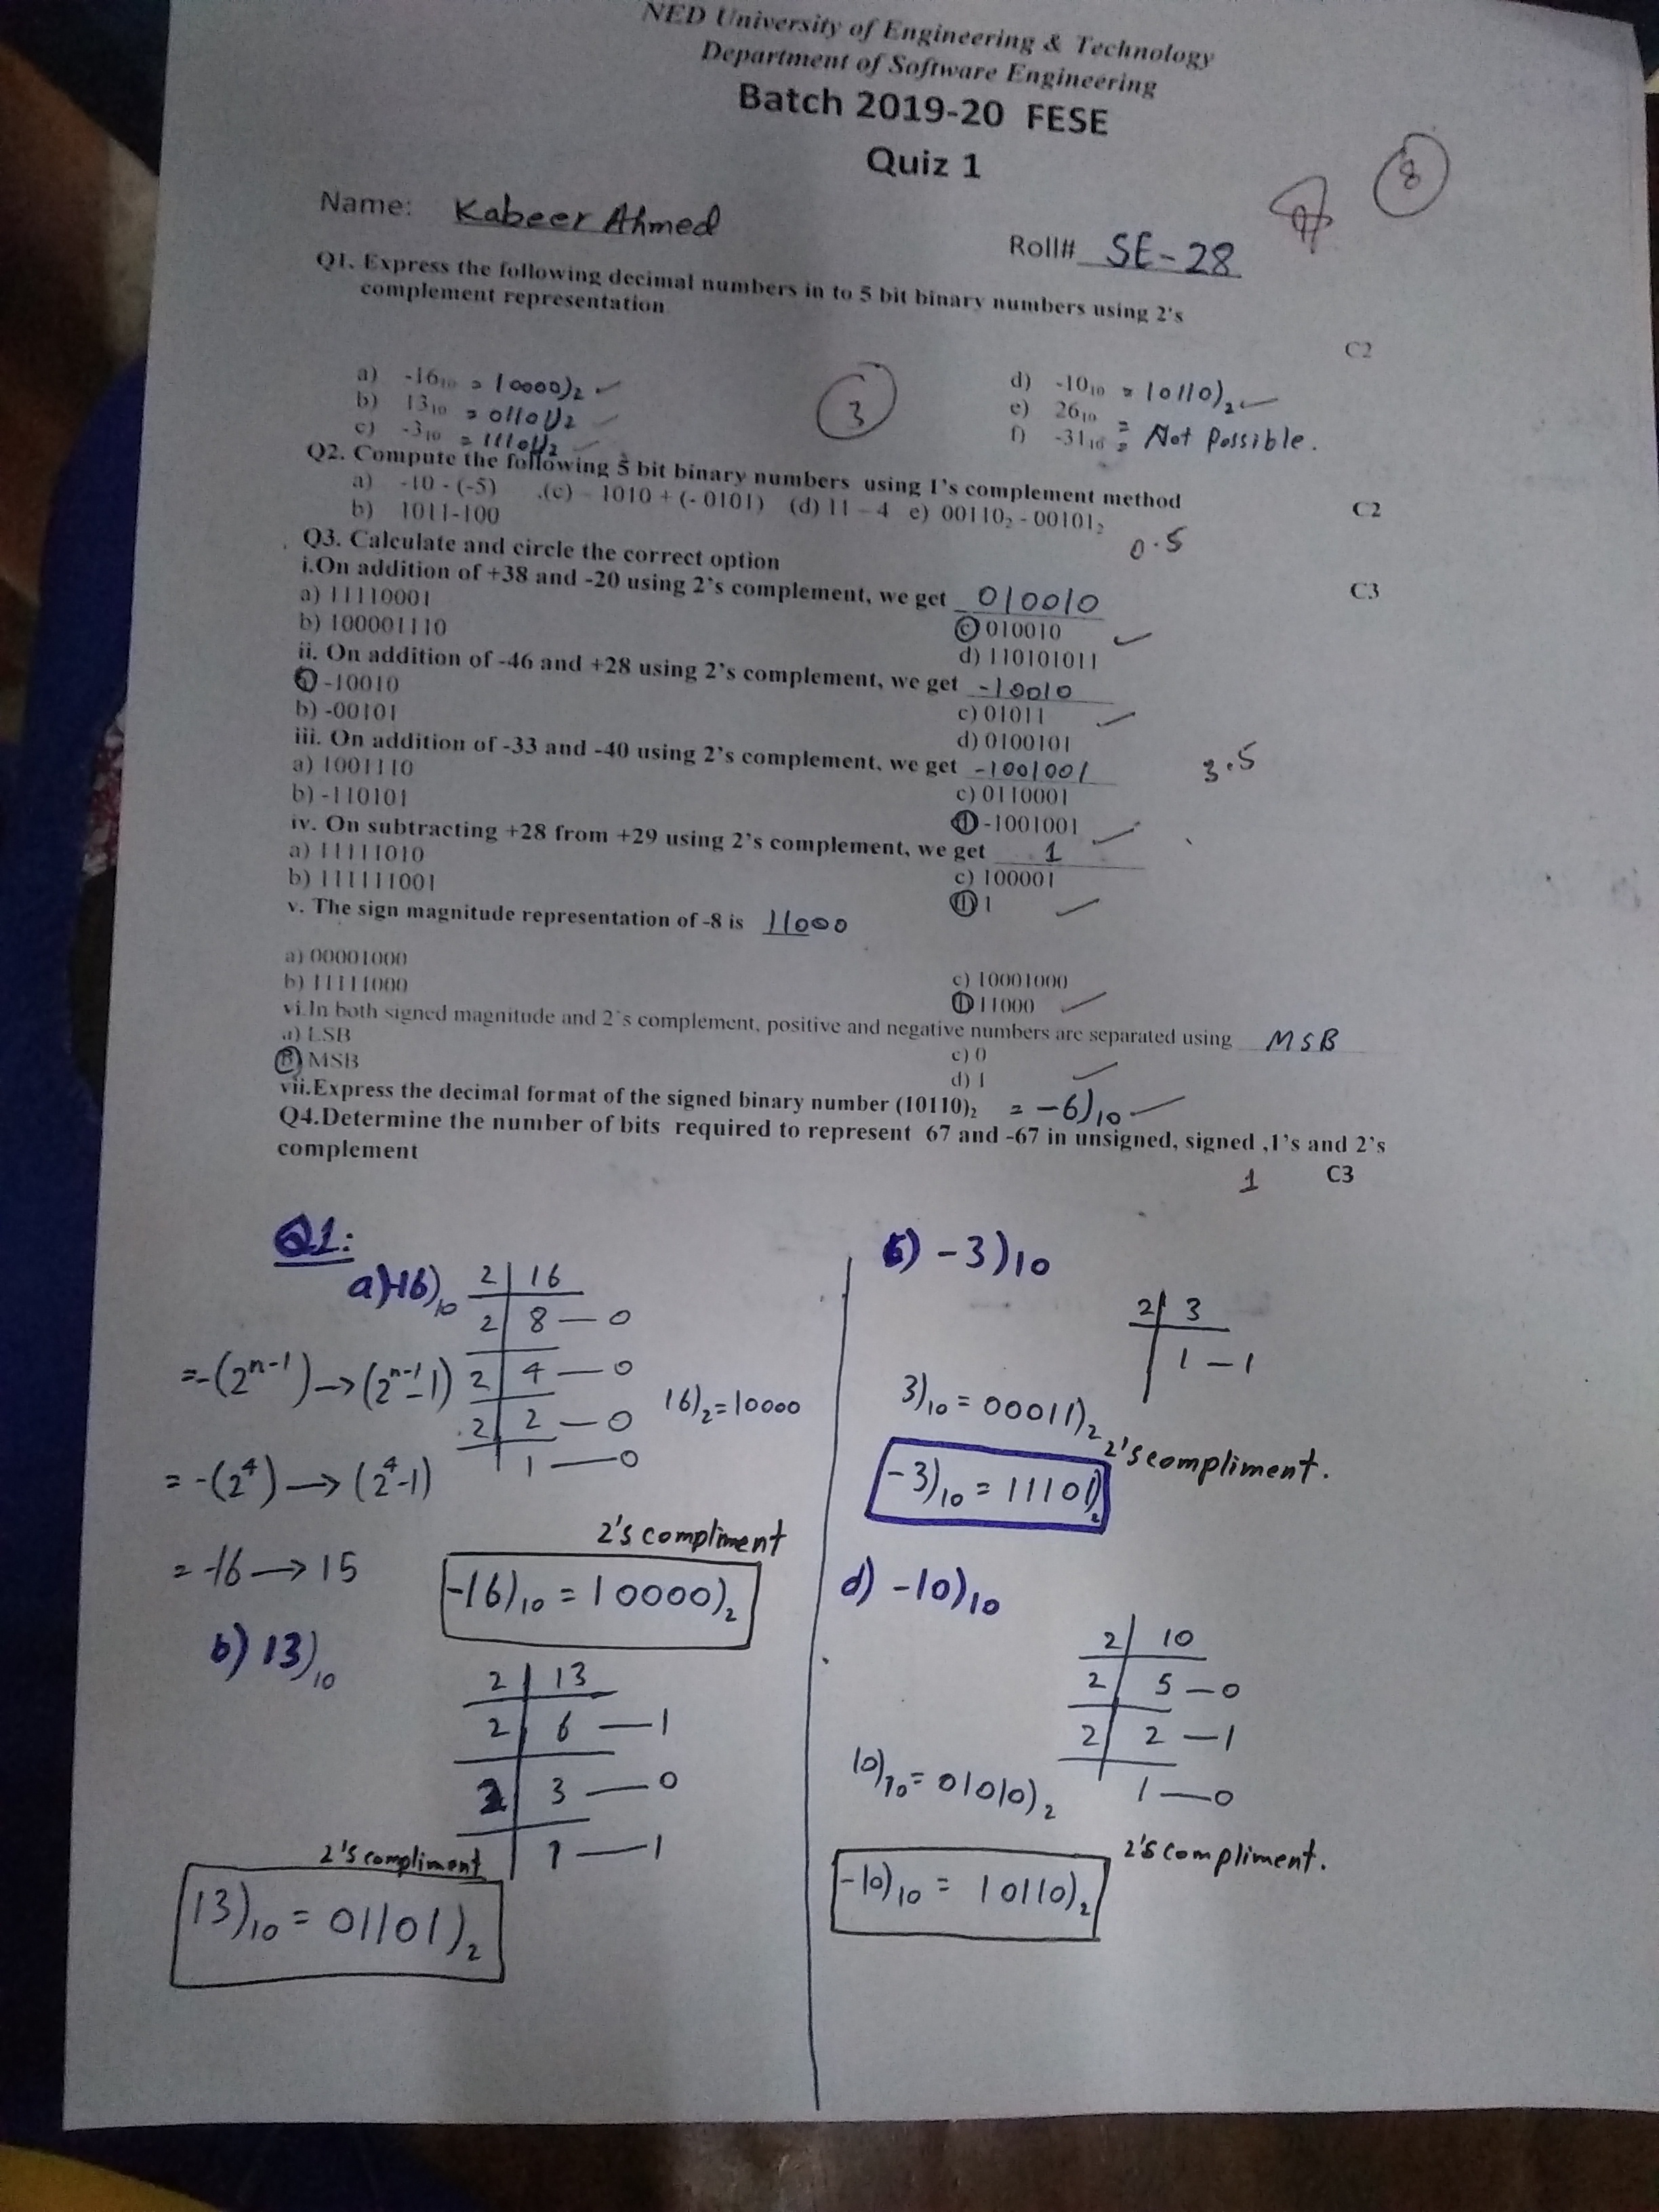 NED University of Engineering & Technology
Department of Software Engineering
Batch 2019-20 FESE
Quiz 1
8
Name: Kabeer Ahmed
Roll# SE-28
Q1. Express the following decimal numbers in to 5 bit binary numbers using 2's
complement representation
C2
a) -16₁₀ = 10000)₂ ✓
b) 13₁₀ = 01101)₂ ✓
c) -3₁₀ = 11101)₂ ✓
3
d) -10₁₀ = 10110)₂ ✓
e) 26₁₀ =
f) -31₁₀ = Not Possible.
Q2. Compute the following 5 bit binary numbers using 1's complement method
C2
a) -10 - (-5) .(c) - 1010 + (- 0101) (d) 11 – 4 e) 00110₂ - 00101₂
b) 1011-100
0.5
Q3. Calculate and circle the correct option
C3
i.On addition of +38 and -20 using 2's complement, we get 010010
a) 11110001
b) 100001110
c) 010010 ✓
d) 110101011
ii. On addition of -46 and +28 using 2's complement, we get -10010
a) -10010
b) -00101
c) 01011 ✓
d) 0100101
iii. On addition of -33 and -40 using 2's complement, we get -1001001
3.5
a) 1001110
b) -110101
c) 0110001
d) -1001001 ✓
iv. On subtracting +28 from +29 using 2's complement, we get 1
a) 11111010
b) 111111001
c) 100001
d) 1 ✓
v. The sign magnitude representation of -8 is 11000
a) 00001000
b) 11111000
c) 10001000
d) 11000 ✓
vi.In both signed magnitude and 2's complement, positive and negative numbers are separated using MSB
a) LSB
B) MSB
c) 0
d) 1 ✓
vii.Express the decimal format of the signed binary number (10110)₂ = -6)₁₀ ✓
Q4.Determine the number of bits required to represent 67 and -67 in unsigned, signed ,1's and 2's
complement
1 C3
Q1:
a) -16)₁₀
2 16
2 8 — 0
2 4 — 0
2 2 — 0
1 — 0
16)₂ = 10000
= -(2ⁿ⁻¹) → (2ⁿ⁻¹-1)
= -(2⁴) → (2⁴-1)
= -16 → 15
2's compliment
-16)₁₀ = 10000)₂
b) 13)₁₀
2 13
2 6 — 1
2 3 — 0
1 — 1
2's compliment
13)₁₀ = 01101)₂
c) -3)₁₀
2 3
1 — 1
3)₁₀ = 00011)₂
2's compliment.
-3)₁₀ = 11101)₂
d) -10)₁₀
2 10
2 5 — 0
2 2 — 1
1 — 0
10)₁₀ = 01010)₂
2's compliment.
-10)₁₀ = 10110)₂